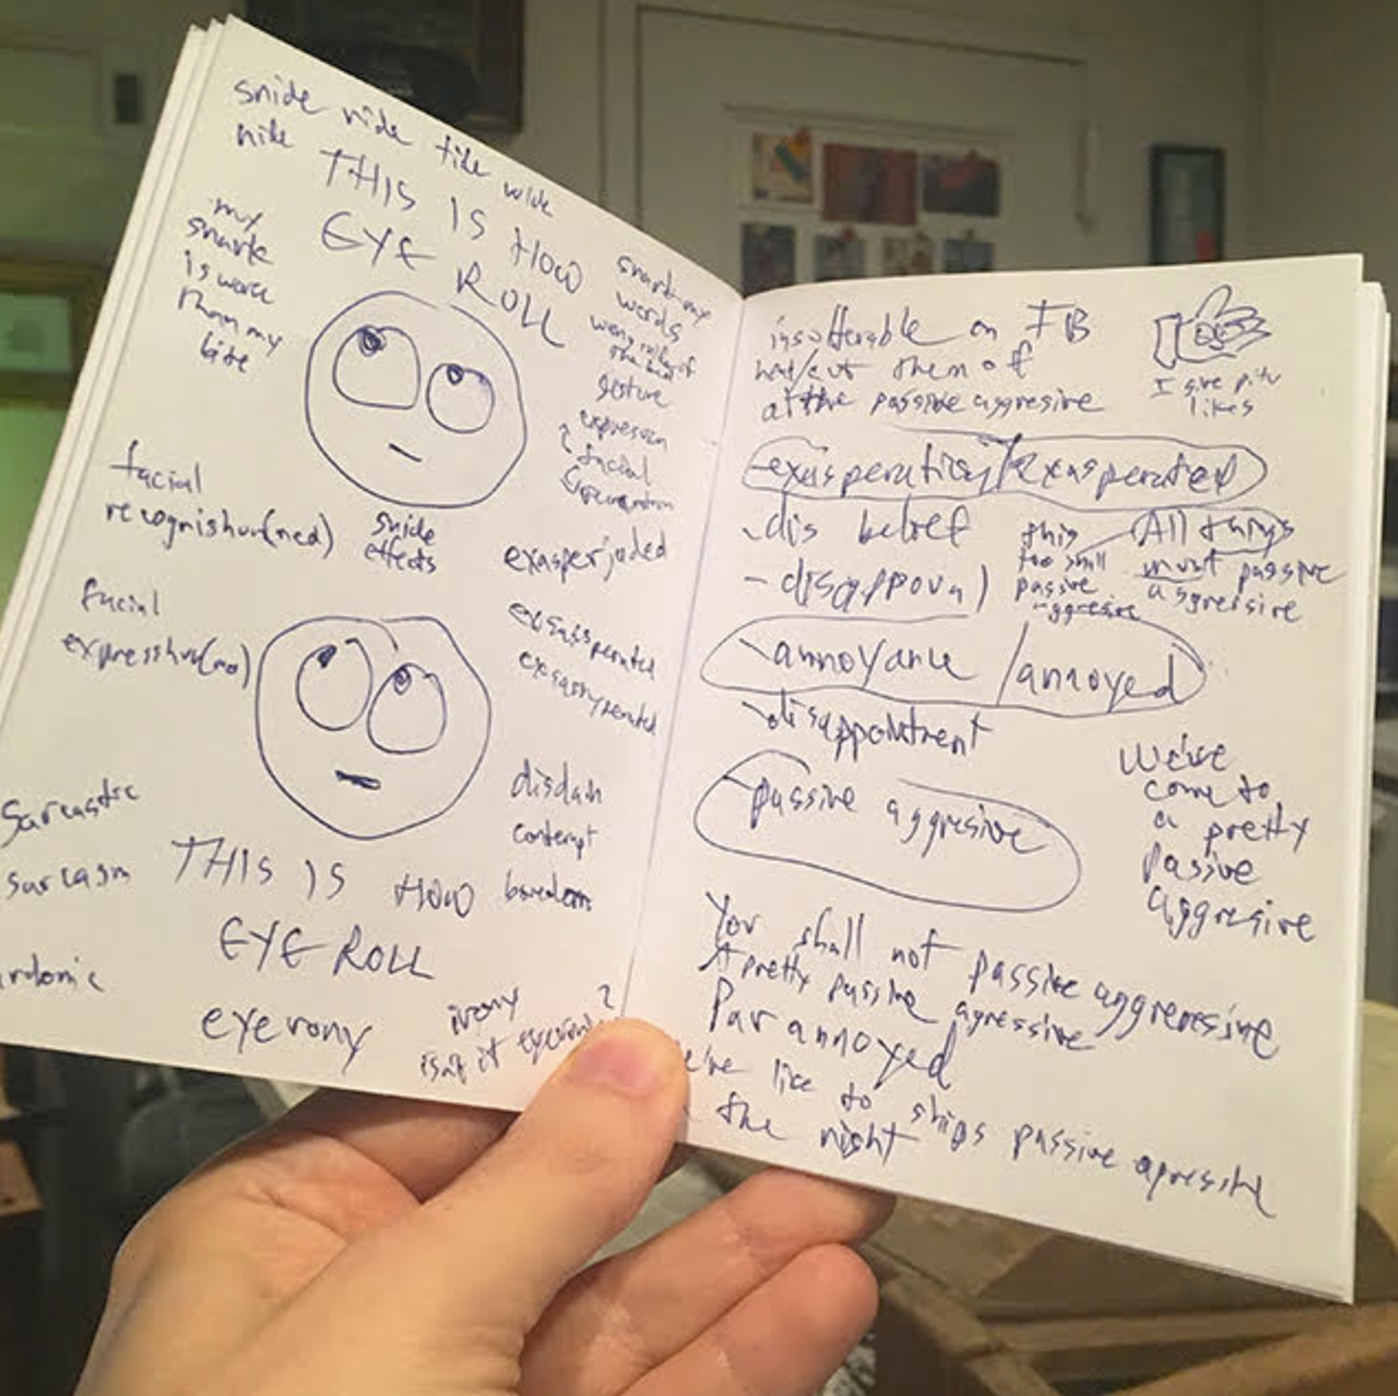 snide ride tide wide
THIS IS HOW
EYE ROLL
my
snark
is worse
than my
bite
snark my
words
gesture
expression
facial
facial
recognishun(ned)
snide
effects
exasperjaded
facial
disdain
contempt
boredom
Sarcastic
sarcasm
THIS IS HOW
EYE ROLL
eyerony
irony
isn't it
insufferable on FB
them of
at the passive aggresive
I give pity
likes
exasperation/exasperated
- dis belief
- disapproval
this
too shall
passive
aggresive
All things
must passive
aggressive
- annoyance / annoyed
- disappointment
- passive aggresive
We've
come to
a pretty
passive
aggresive
You shall not passive
A pretty passive agressive
Par annoyed
like to ships passive
the night